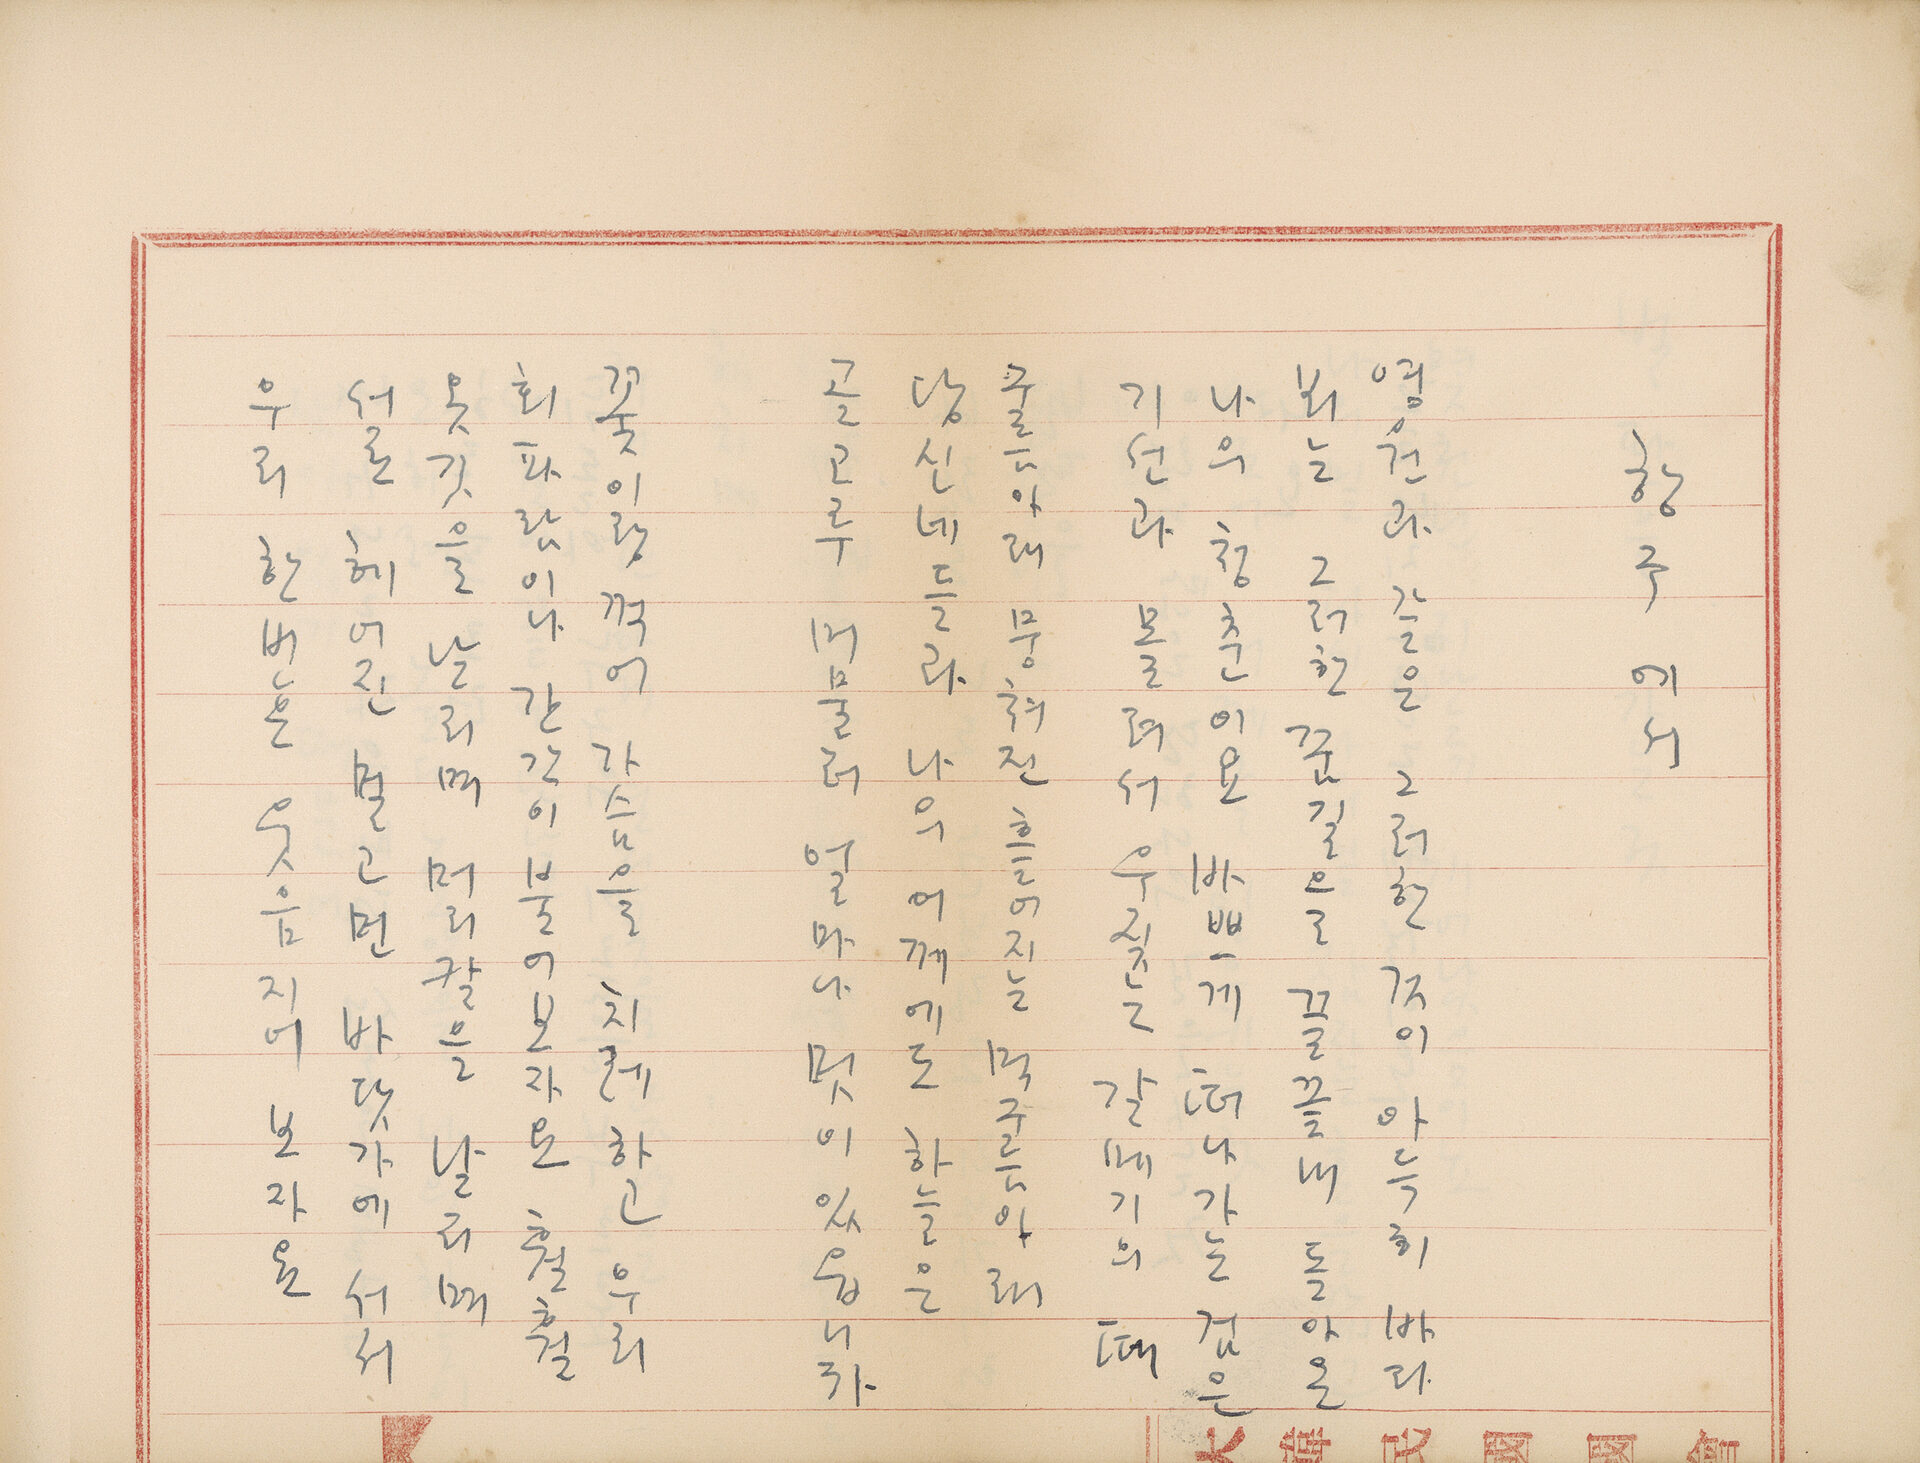 항구에서
영원과 같은 그러한 것이 아득히 바라
뵈는 그러한 꿈길을 끝끝내 돌아온
나의 청춘이요 바쁘게 떠나가는 검은
기선과 몰려서 우짖는 갈메기의 떼
구름아래 뭉쳐선 흩어지는 먹구름아래
당신네들과 나의 어깨에도 하늘은
골고루 머물러 얼마나 멋이 있읍니까
꽃이랑 꺾어 가슴을 치레하고 우리
회파람이나 간간이 불어보자요 훨훨
옷깃을 날리며 머리칼을 날리며
서로 헤어진 멀고먼 바닷가에 서서
우리 한번은 웃음지어 보자요
大韓民國國會